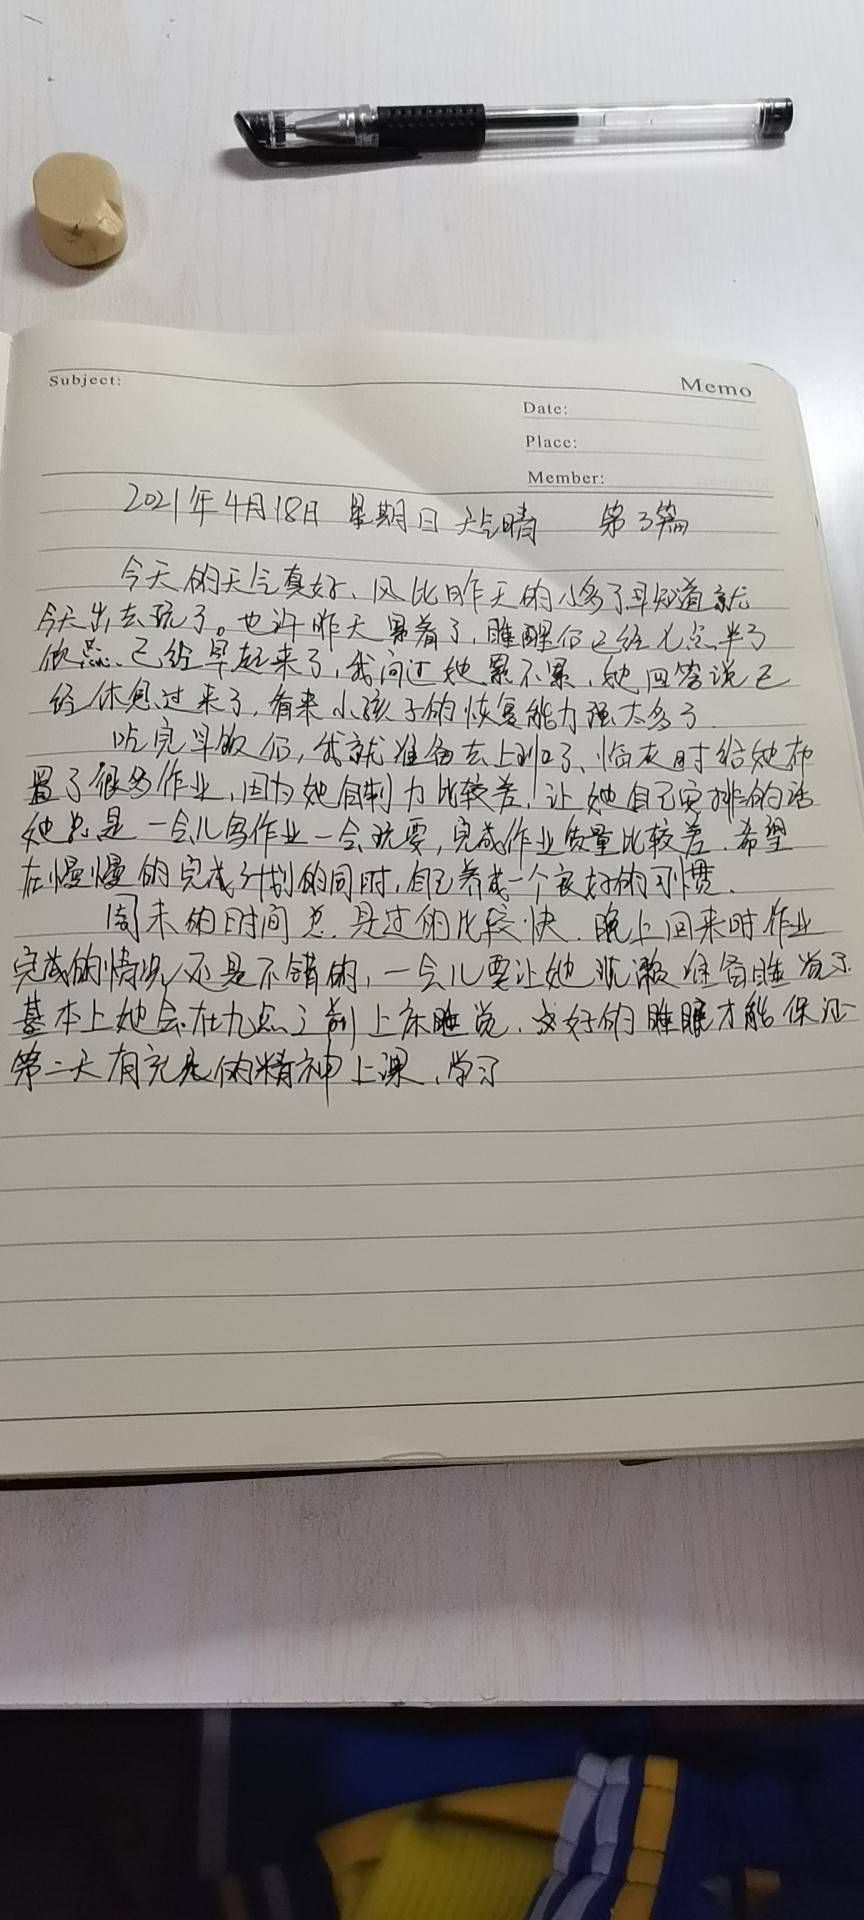 Subject:
Memo
Date:
Place:
Member:
2021年4月18日 星期日 天气晴 第3篇
今天的天气真好、风比昨天的小多了早知道就
今天出去玩了。也许昨天累着了,睡醒后已经七点半了
依蕊、已经早起来了,我问过她累不累、她回答说已
经休息过来了,看来小孩子的恢复能力强太多了.
吃完早饭后,我就准备去上班了、临走时给她布
置了很多作业,因为她自制力比较差,让她自己安排的话
她总是一会儿写作业一会玩耍,完成作业质量比较差.希望
在慢慢的完成计划的同时,自己养成一个良好的习惯.
周末的时间总是过的比较快.晚上回来时作业
完成的情况还是不错的,一会儿要让她洗漱准备睡觉了.
基本上她会在九点之前上床睡觉、好的睡眠才能保证
第二天有充足的精神上课、学习